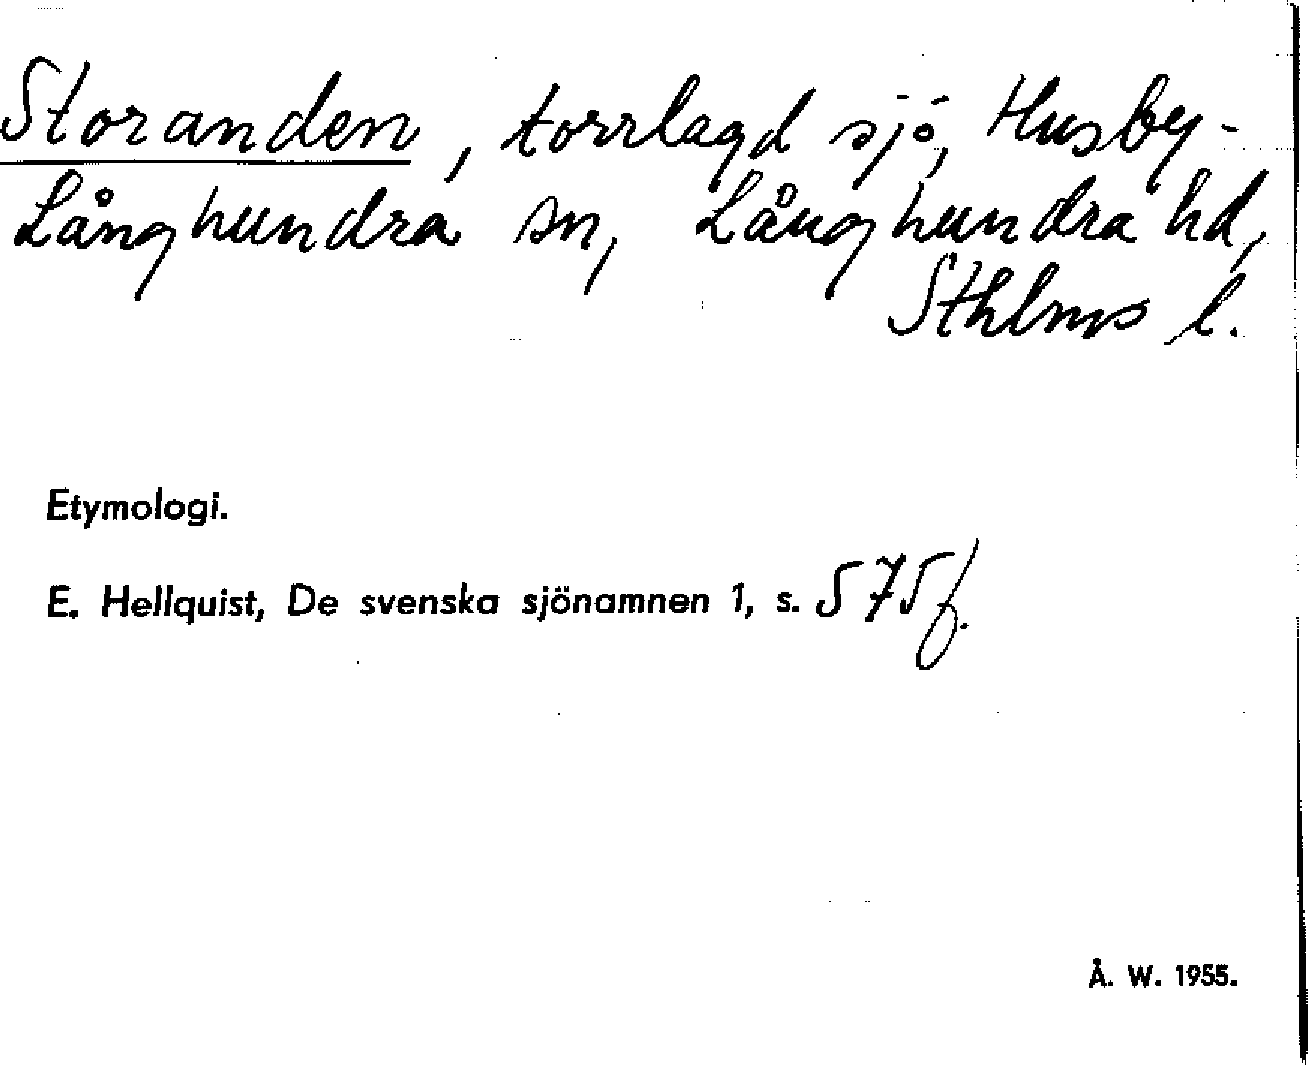 Storanden, torrlagd sjö, Husby-
Långhundra sn, Långhundra hd,
Sthlms l.
Etymologi.
E. Hellquist, De svenska sjönamnen 1, s. 575 f.
Å. W. 1955.